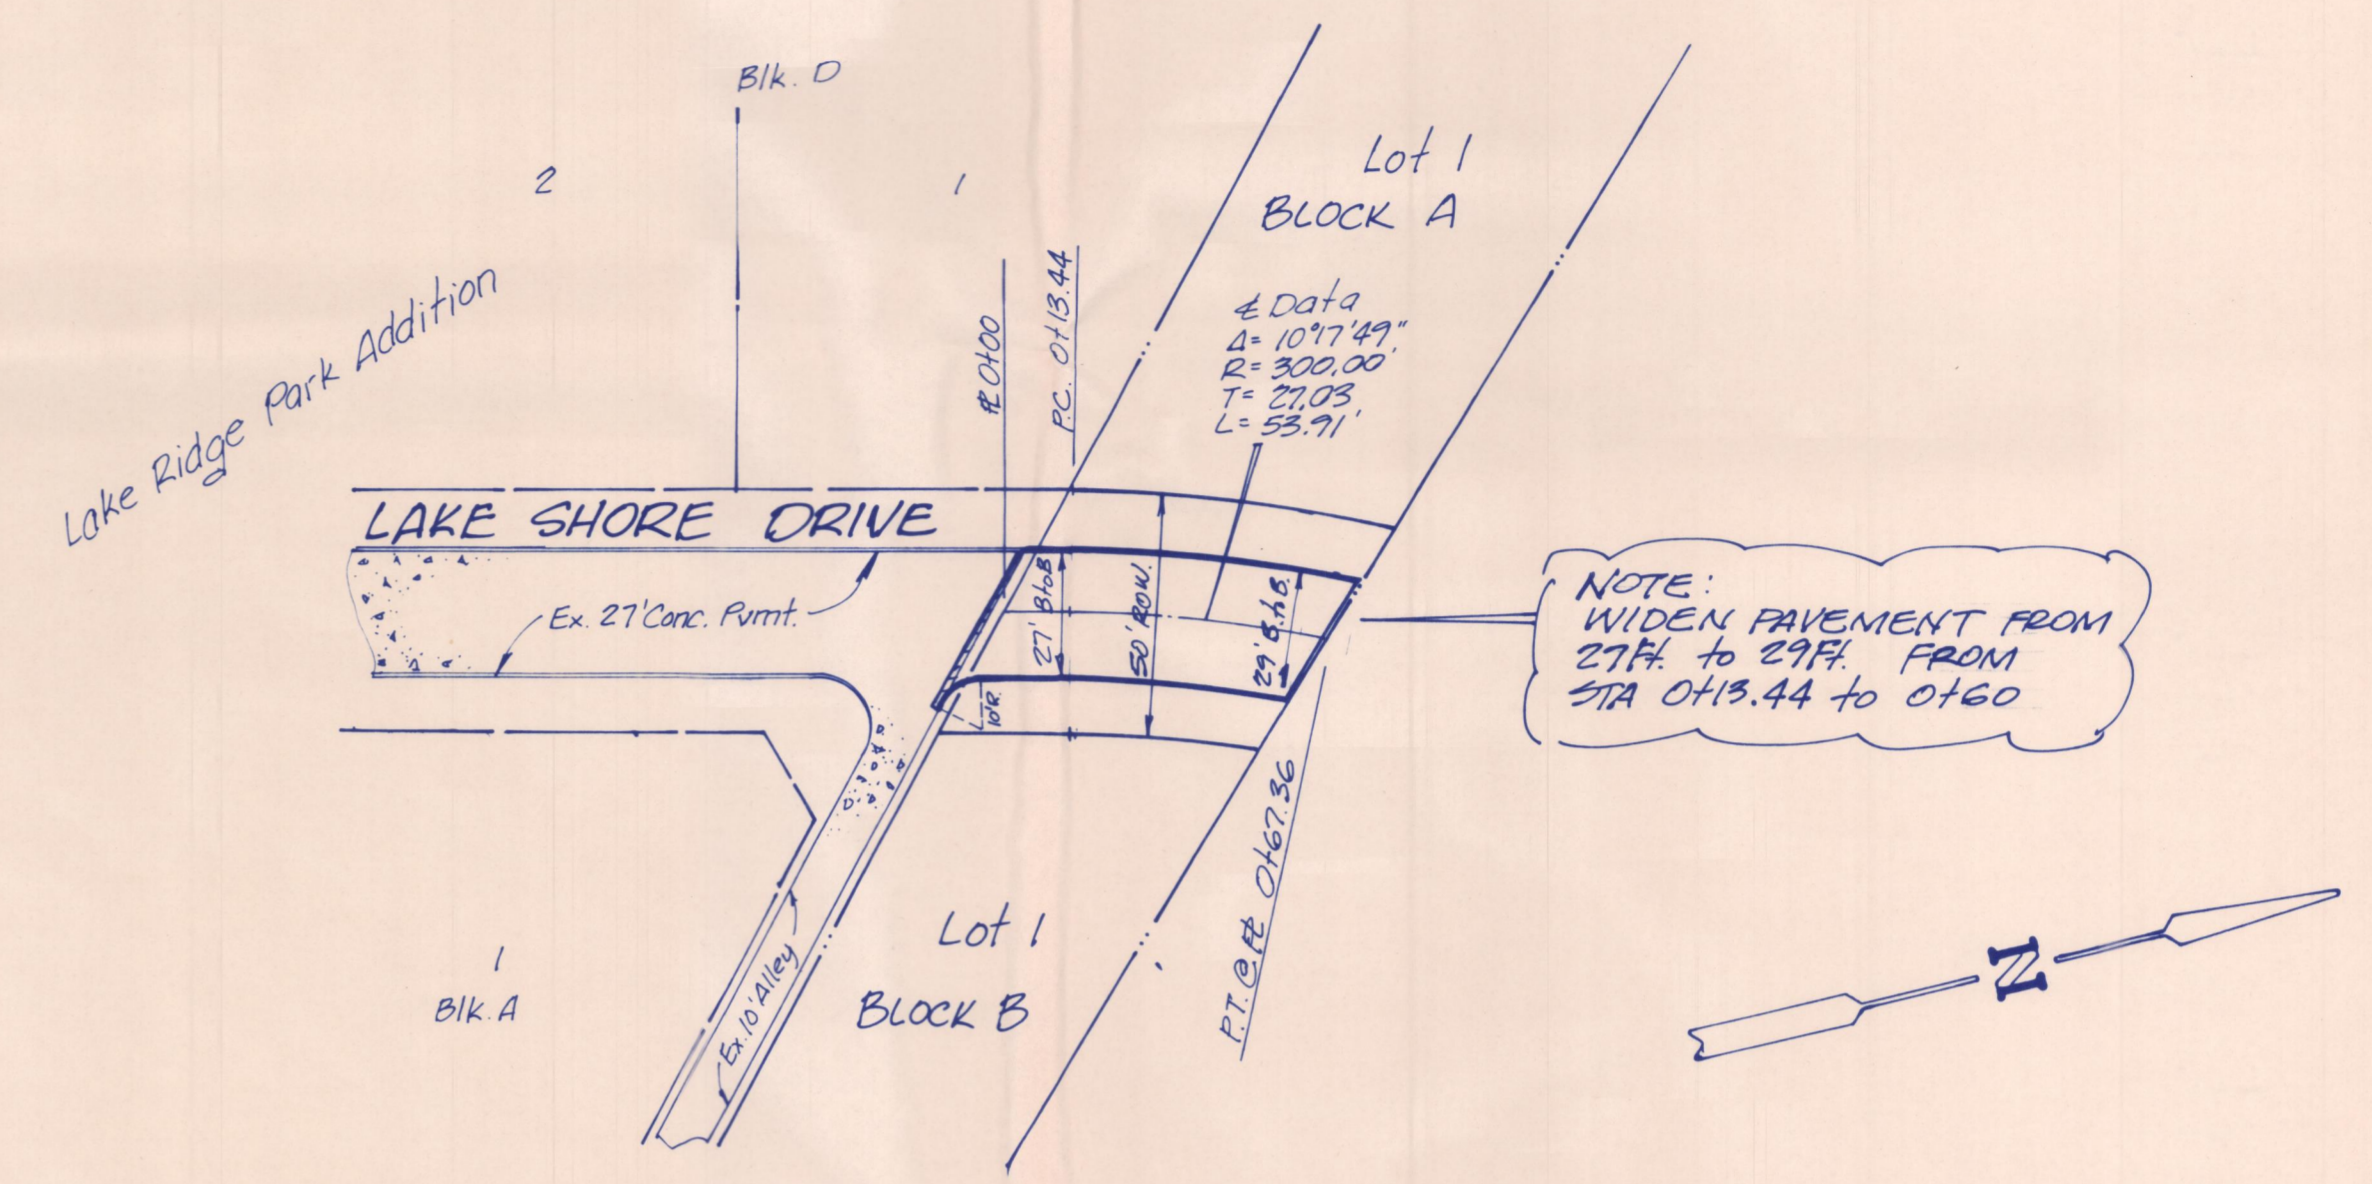 Blk. D
2
1
Lot 1
BLOCK A
Lake Ridge Park Addition
℄ Data
Δ= 10°17'49"
R= 300.00'
T= 27.03
L= 53.91'
0+00
P.C. 0+13.44
LAKE SHORE DRIVE
Ex. 27' Conc. Pvmt.
27' BtoB
50' ROW.
29' B.toB.
10'R.
NOTE:
WIDEN PAVEMENT FROM
27Ft. to 29Ft. FROM
STA 0+13.44 to 0+60
P.T. @ ℄ 0+67.36
Lot 1
BLOCK B
1
Blk. A
Ex. 10' Alley
N